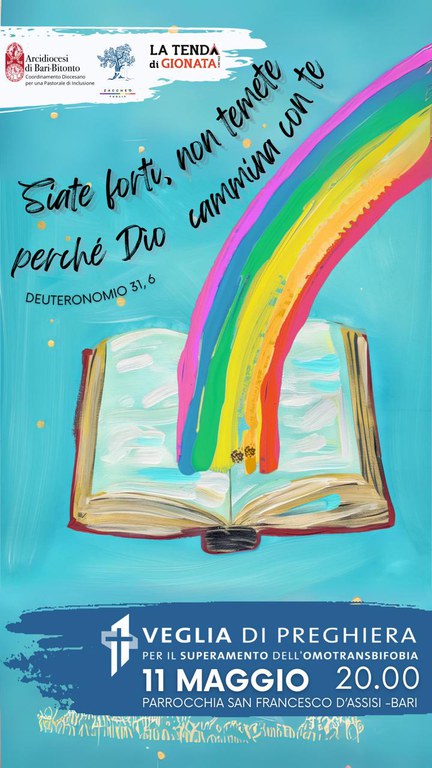 Arcidiocesi
di Bari-Bitonto
Coordinamento Diocesano
per una Pastorale di Inclusione
ZACCHEO
PUGLIA
LA TENDA
di GIONATA
Siate forti, non temete
perché Dio cammina con te
DEUTERONOMIO 31, 6
VEGLIA DI PREGHIERA
PER IL SUPERAMENTO DELL'OMOTRANSBIFOBIA
11 MAGGIO 20.00
PARROCCHIA SAN FRANCESCO D'ASSISI -BARI